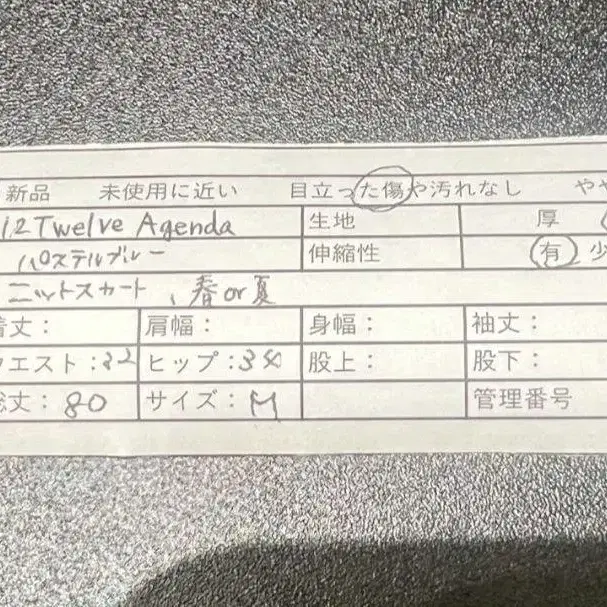 新品 未使用に近い 目立った傷や汚れなし やや
12 Twelve Agenda 生地 厚
パステルブルー 伸縮性 有 少
ニットスカート、春or夏
着丈： 肩幅： 身幅： 袖丈：
ウエスト：32 ヒップ：350 股上： 股下：
総丈：80 サイズ：M 管理番号